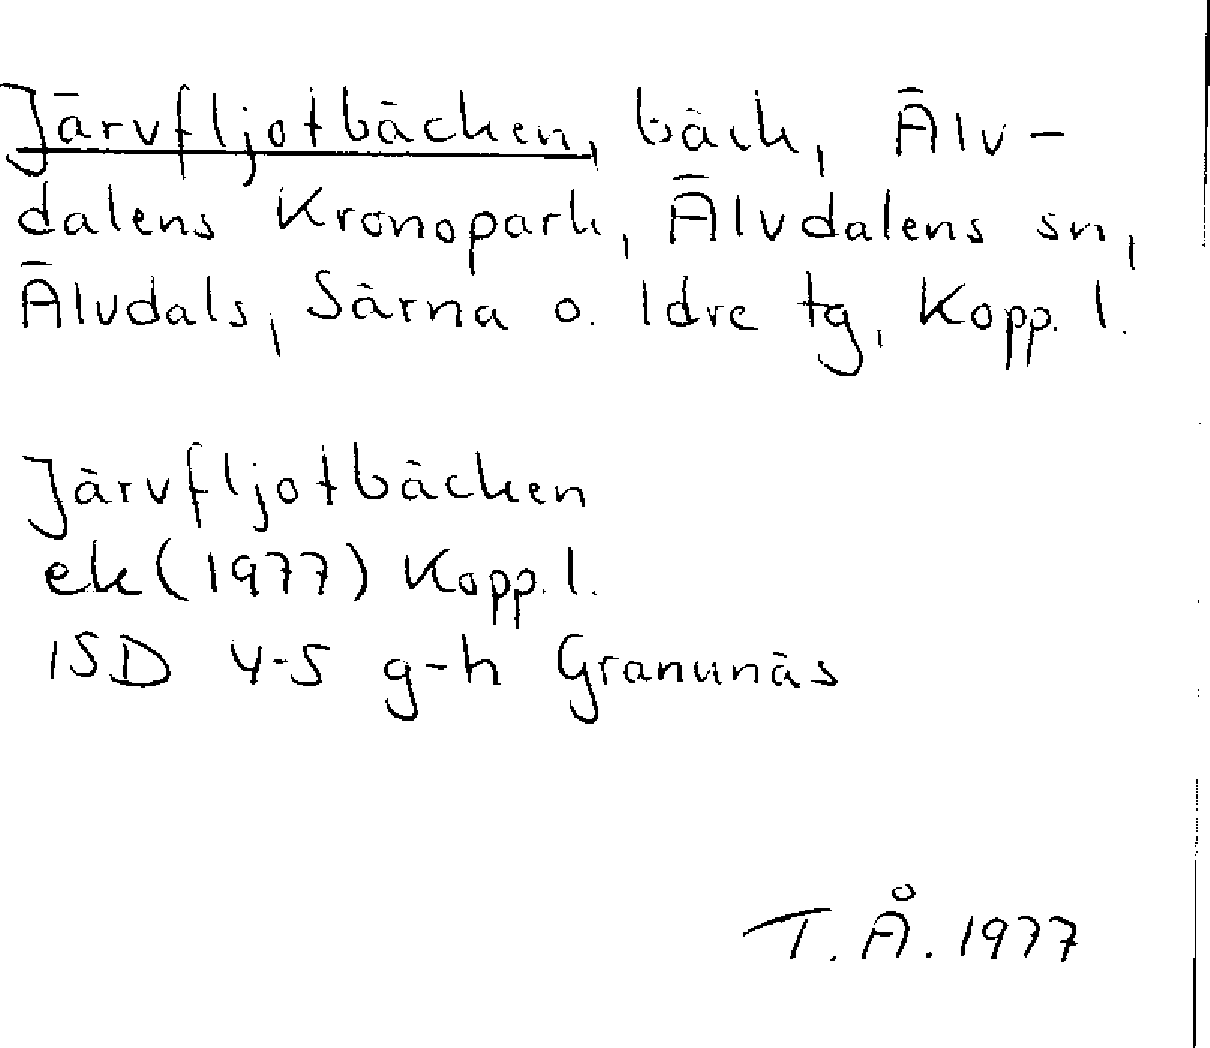 Järvfljotbäcken, bäck, Älv-
dalens Kronopark, Älvdalens sn,
Älvdals, Särna o. Idre tg, Kopp. l.
Järvfljotbäcken
ek (1977) Kopp. l.
15D 4-5 g-h Granunäs
T. Å. 1977